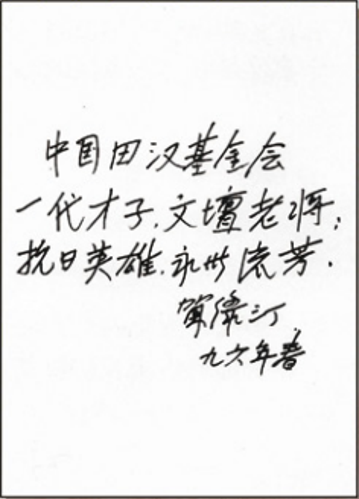 中国田汉基金会
一代才子，文壇老将；
抗日英雄，永世流芳．
九六年春